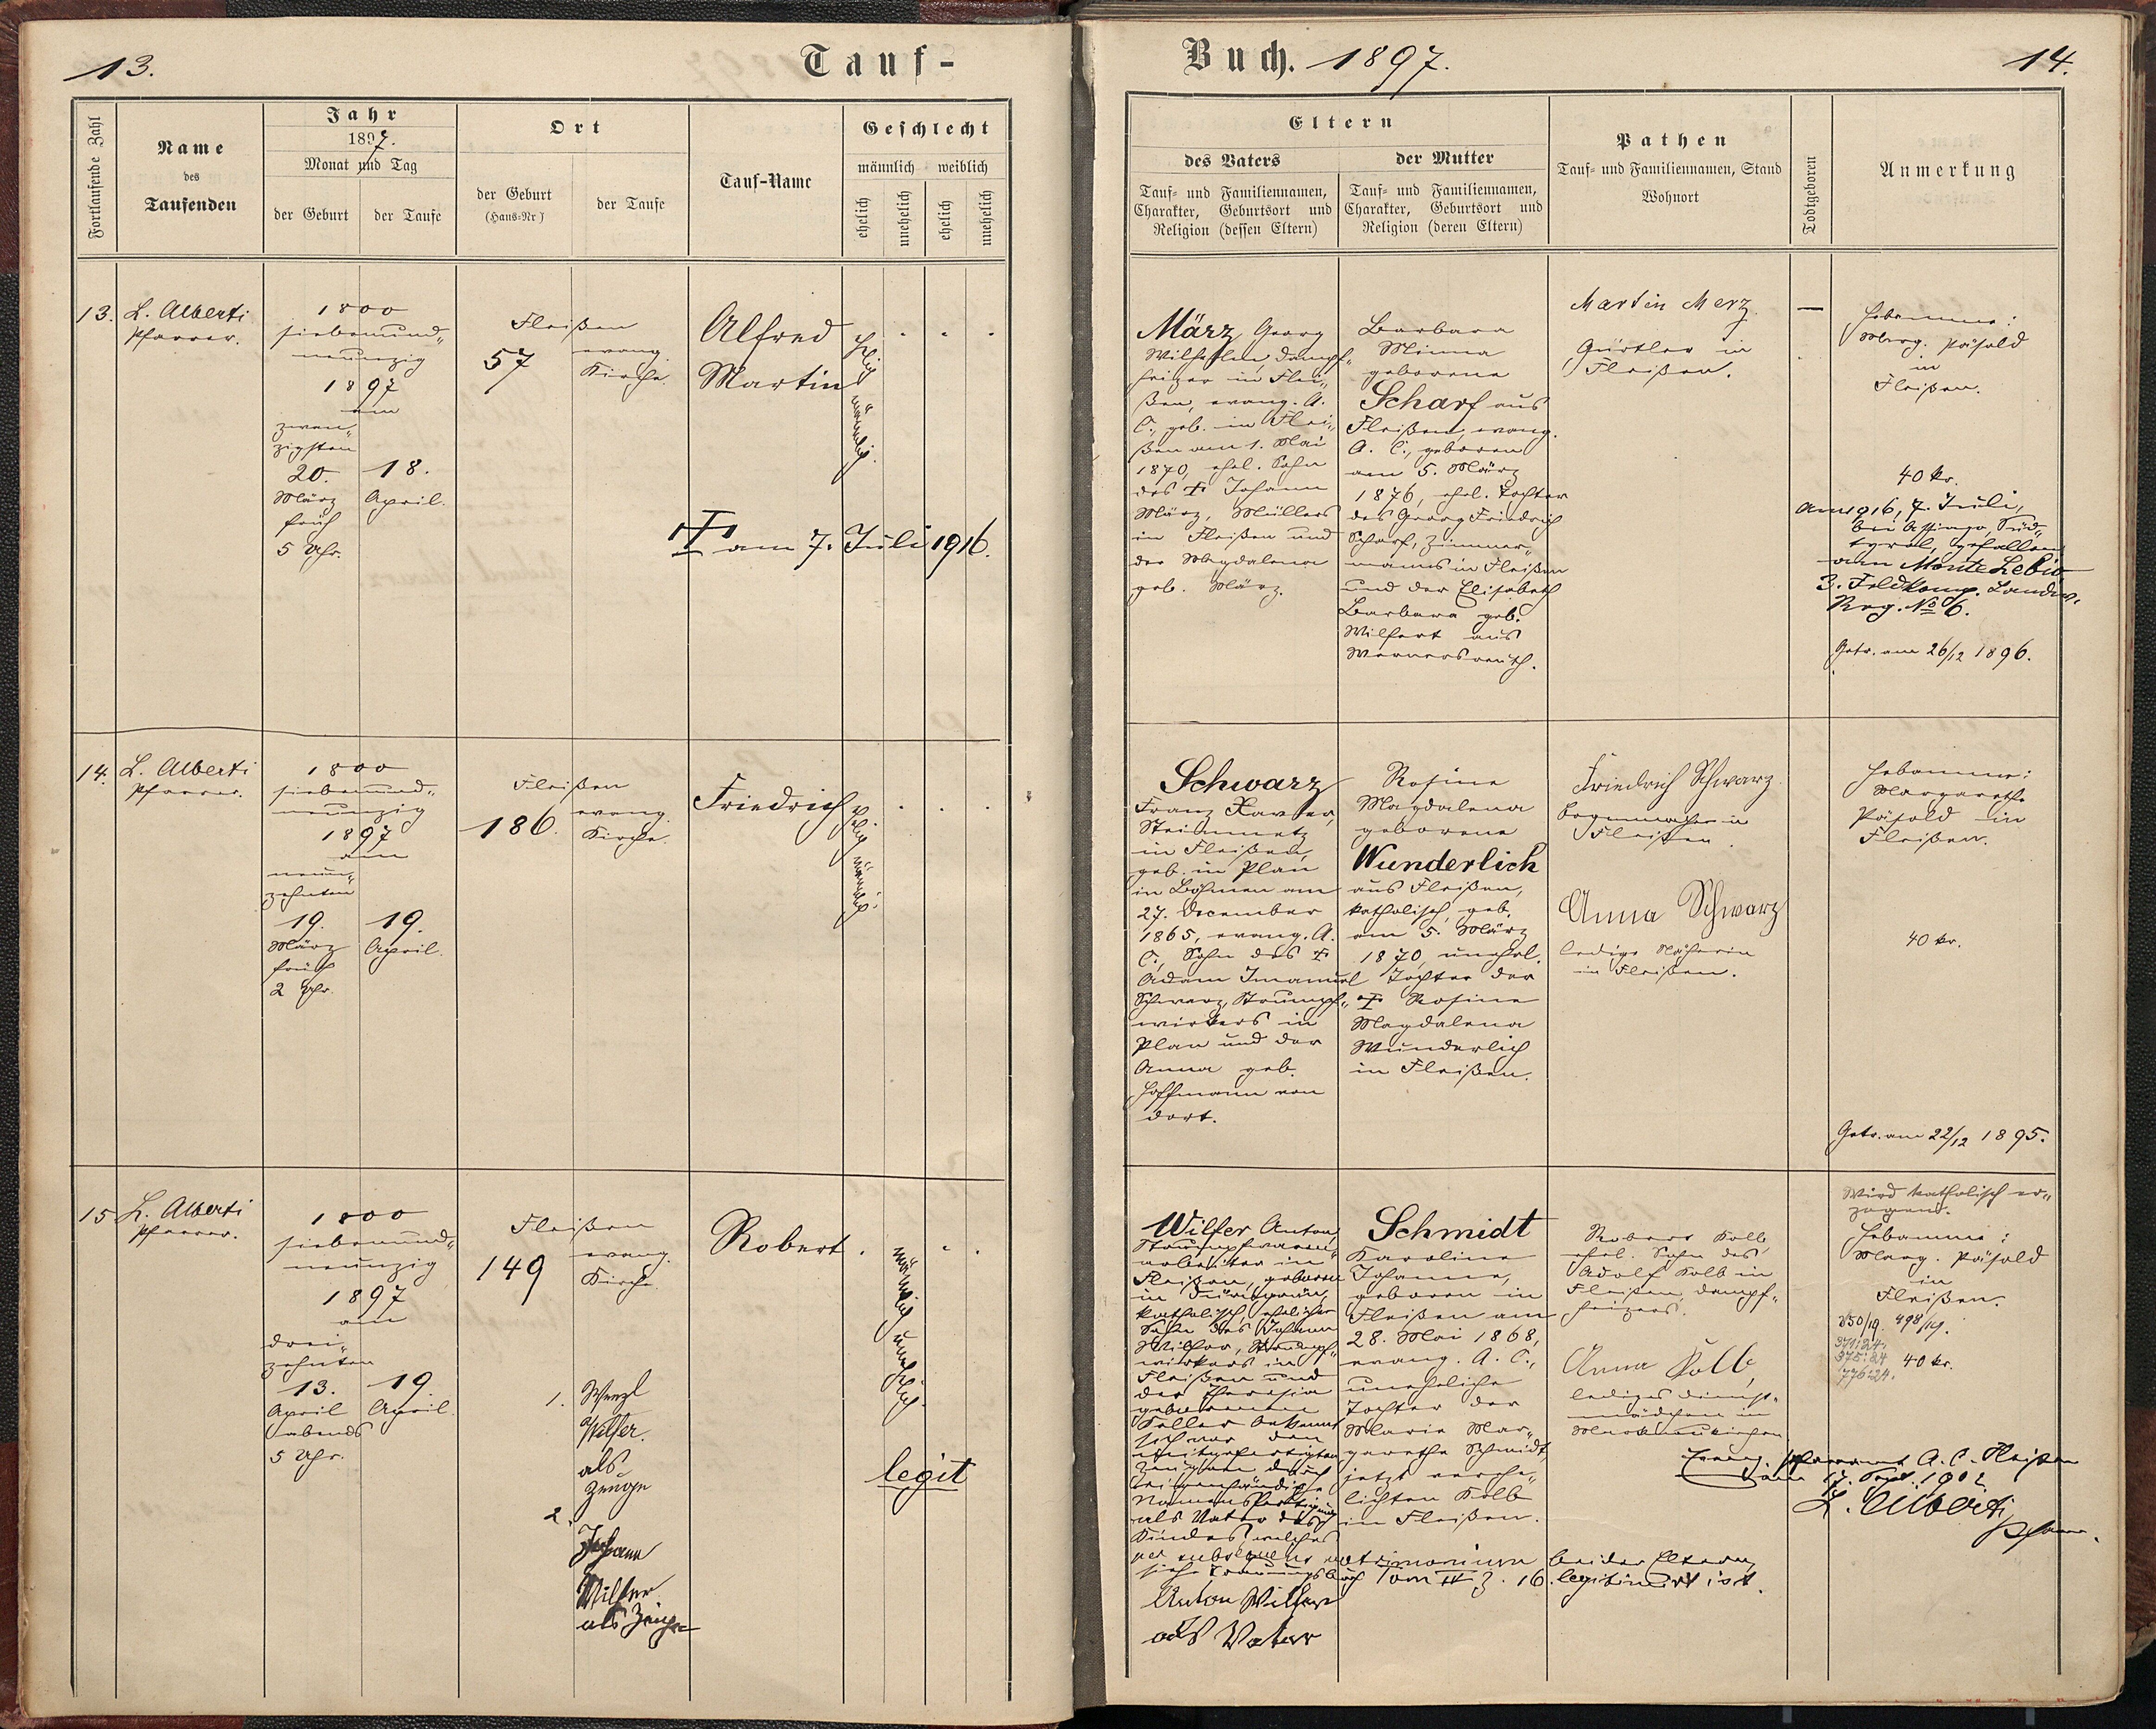 13.
Tauf-
Buch. 1897.
14.
Fortlaufende Zahl
Name
des
Taufenden
Jahr
1897.
Monat und Tag
der Geburt
der Taufe
Ort
der Geburt
(Haus-Nr)
der Taufe
Tauf-Name
Geschlecht
männlich
weiblich
ehelich
unehelich
ehelich
unehelich
Eltern
des Vaters
Tauf- und Familiennamen,
Charakter, Geburtsort und
Religion (dessen Eltern)
der Mutter
Tauf- und Familiennamen,
Charakter, Geburtsort und
Religion (deren Eltern)
Pathen
Tauf- und Familiennamen, Stand
Wohnort
Todtgeboren
Anmerkung
13.
L. Alberti
Pfarrer.
1800
siebenund-
neunzig
1897
am
zwan-
zigsten
20.
März
früh
5 Uhr.
18.
April.
Fleißen
57
evang.
Kirche.
Alfred
Martin
ehelich
männlich.
† am 7. Juli 1916.
März Georg
Wilhelm, Dampf-
heizer in Flei-
ßen, evang. A.
C., geb. in Flei-
ßen am 1. Mai
1870, ehel. Sohn
des † Johann
März, Müllers
in Fleißen und
der Magdalena
geb. März.
Barbara
Minna
geborene
Scharf aus
Fleißen, evang.
A. C., geboren
am 5. März
1876, ehel. Tochter
des Georg Friedrich
Scharf, Zimmer-
manns in Fleißen
und der Elisabeth
Barbara geb.
Wilfert aus
Wernersreuth.
Martin Merz.
Gürtler in
Fleißen.
—
Hebamme:
Marg. Pösold
in
Fleißen.
40 kr.
Am 1916, 7. Juli,
bei Assiago, Süd-
tyrol, gefallen
am Monte Lebio
3. Feldkomp. Landw.
Reg. № 6.
Getr. am 26/12 1896.
14.
L. Alberti
Pfarrer.
1800
siebenund-
neunzig
1897
am
neun-
zehnten
19.
März
früh
2 Uhr.
19.
April.
Fleißen
186.
evang.
Kirche.
Friedrich
ehelich
männlich.
Schwarz
Franz Xaver,
Steinmetz
in Fleißen,
geb. in Plan
in Böhmen am
27. December
1865, evang. A.
C., Sohn des †
Adam Imanuel
Schwarz, Strumpf-
wirkers in
Plan und der
Anna geb.
Hoffmann von
dort.
Rosine
Magdalena
geborene
Wunderlich
aus Fleißen,
katholisch, geb.
am 5. März
1870, unehel.
Tochter der
† Rosine
Magdalena
Wunderlich
in Fleißen.
Friedrich Schwarz.
Bogenmacher in
Fleißen.
Anna Schwarz
ledige Näherin
in Fleißen.
Hebamme:
Margarethe
Pösold in
Fleißen.
40 kr.
Getr. am 22/12 1895.
15.
L. Alberti
Pfarrer.
1800
siebenund-
neunzig
1897
am
drei-
zehnten
13.
April
abends
5 Uhr.
19.
April.
Fleißen
149
evang.
Kirche.
Robert.
männlich
unehelich.
legit
1. Wenzl
Wilfer.
als
Zeuge
2.
Johann
Wilfer
als Zeuge
Wilfer Anton,
arbeiter in
Fleißen, geboren
katholisch, ehelicher
Sohn des Johann
Wilfer, Strumpf-
wirkers in
Fleißen und
der Theresia
geborenen
bekennt
sich vor den
mitgefertigten
Zeugen durch
eigenhändige
Namensfertigung
als Vater des
Kindes, welches
per subsequens matrimonium beider Eltern,
siehe Trauungsbuch Tom IV Z. 16. legitimirt ist.
Anton Wilfer
als Vater
Schmidt
Karoline
Johanna,
geboren in
Fleißen am
28. Mai 1868,
evang. A. C.,
uneheliche
Tochter der
Marie Mar-
garetha Schmidt,
jetzt verehe-
lichten Kolb
in Fleißen.
Robert Kolb,
ehel. Sohn des
Adolf Kolb in
Fleißen, Dampf-
heizers.
Anna Kolb,
lediges Dienst-
mädchen in
Markneukirchen
Wird katholisch er-
zogen.
Hebamme:
Marg. Pösold
in
Fleißen.
498/19.
371:24.
375:24
776:24.
40 kr.
Evang. Pfarramt A. C. Fleißen
am 17. Sept. 1902
L. Alberti
Pfarrer.